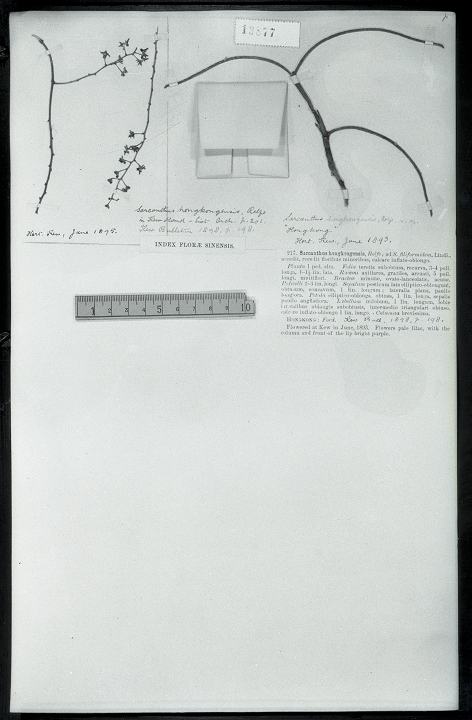 13877
Sarcanthus hongkongensis, Rolfe
in Kew Hand-list Orch. p. 201.
Kew Bulletin 1898, p. 198.
Hort. Kew, June 1895.
INDEX FLORÆ SINENSIS.
Sarcanthus hongkongensis, Rolfe
"Hongkong"
Hort. Kew, June 1893.
217. Sarcanthus hongkongensis, Rolfe; ad S. filiformem, Lindl.,
accedit, recedit floribus minoribus, calcare inflato-oblongo.
Planta 1 ped. alta. Folia teretia subulata, recurva, 3-4 poll.
longa, 1-1½ lin. lata. Racemi axillares, graciles, arcuati, 5 poll.
longi, multiflori. Bracteæ minutæ, ovato-lanceolatæ, acutæ.
Pedicelli 2-3 lin. longi. Sepalum posticum late elliptico-oblongum,
obtusum, concavum, 1 lin. longum; lateralia plana, paullo
longiora. Petala elliptico-oblonga, obtusa, 1 lin. longa, sepalis
paullo angustiora. Labellum trilobum, 1 lin. longum, lobis
lateralibus oblongis subobtusis, intermedio triangulari obtuso,
calcare inflato-oblongo 1 lin. longo. Columna brevissima.
HONGKONG: Ford. Kew Bull., 1898, p. 198.
Flowered at Kew in June, 1895. Flowers pale lilac, with the
column and front of the lip bright purple.
1 2 3 4 5 6 7 8 9 10